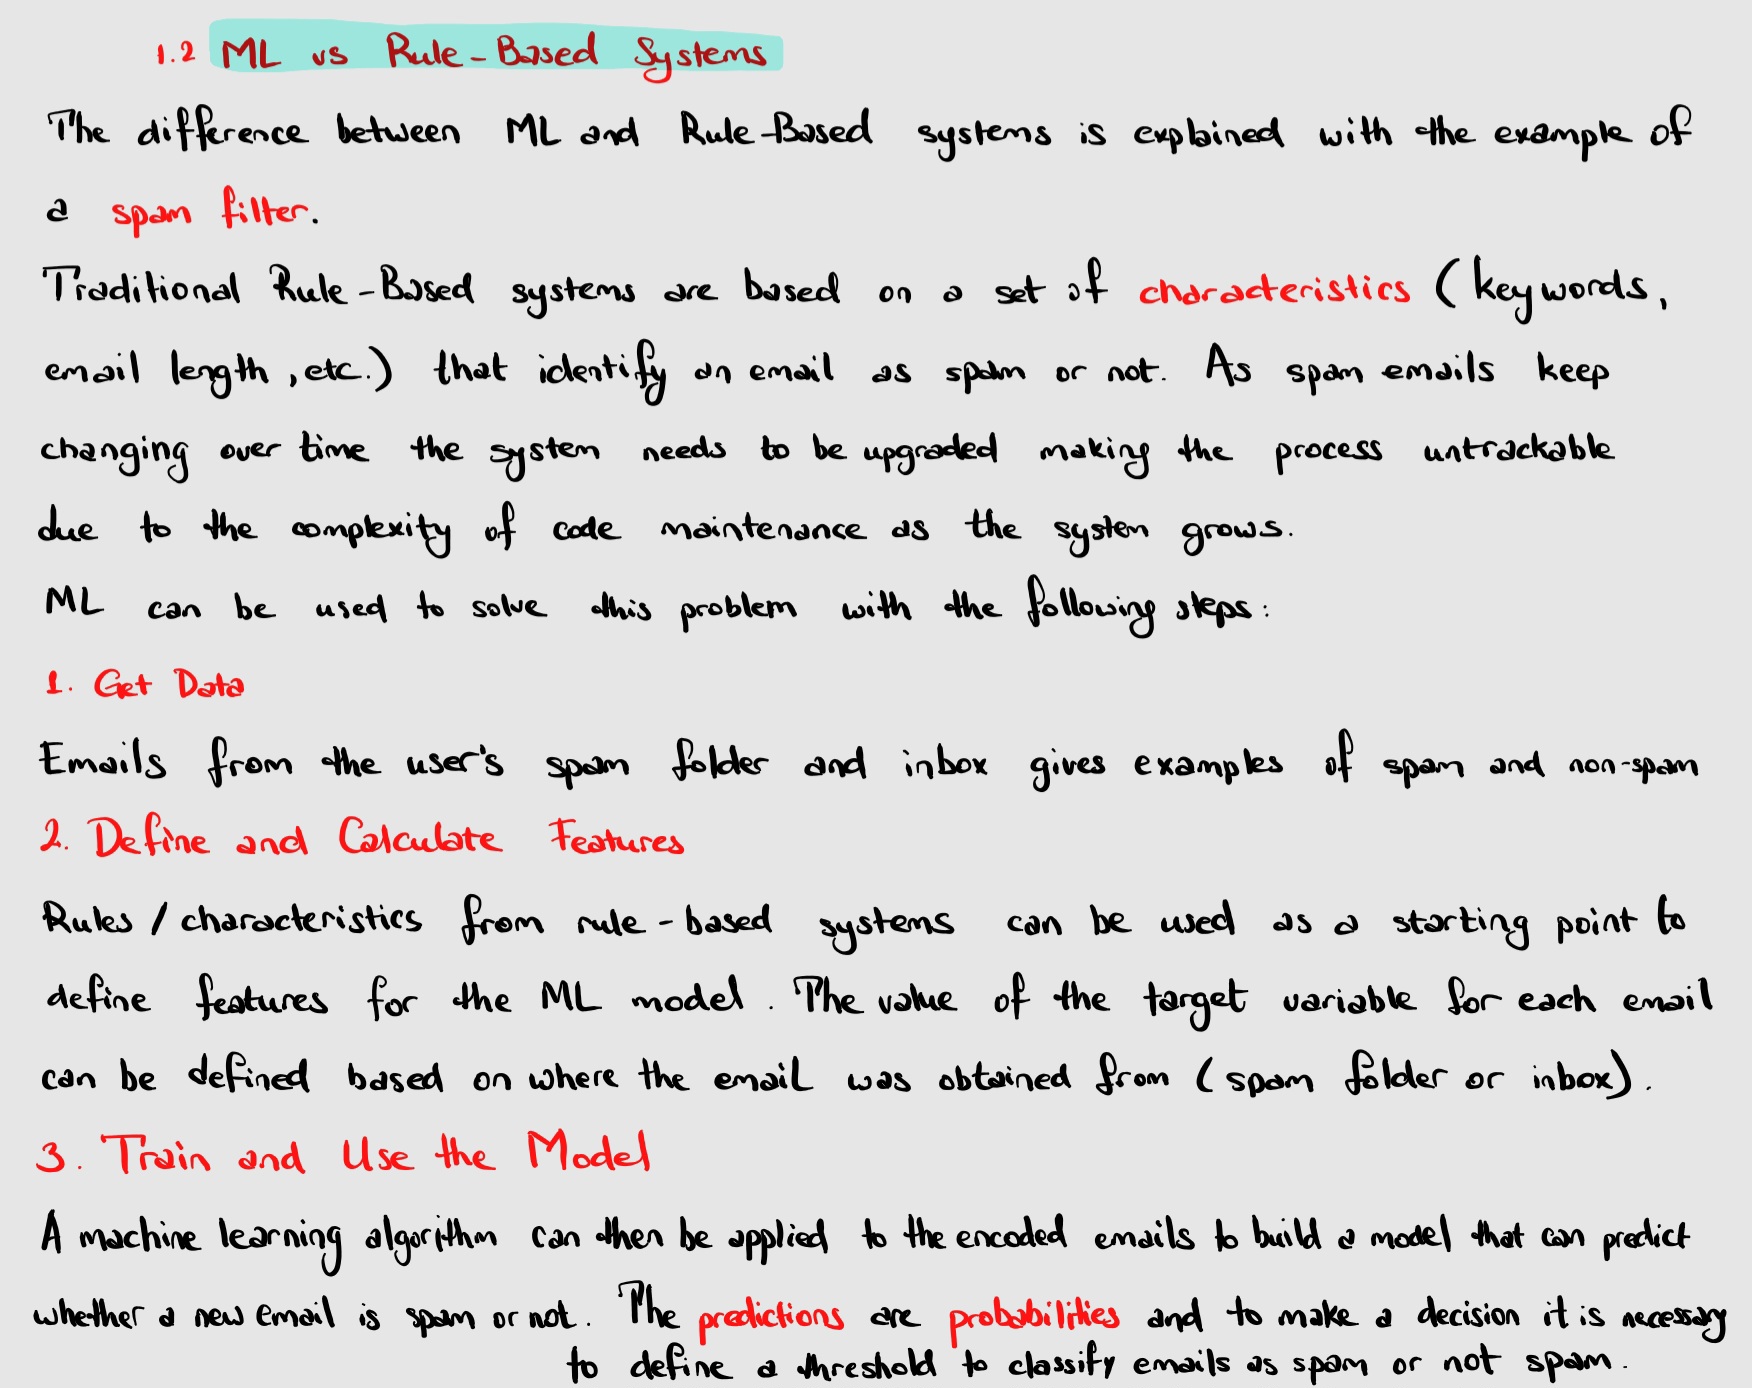 1.2 ML vs Rule-Based Systems
The difference between ML and Rule-Based systems is explained with the example of
a spam filter.
Traditional Rule-Based systems are based on a set of characteristics (keywords,
email length, etc.) that identify an email as spam or not. As spam emails keep
changing over time the system needs to be upgraded making the process untrackable
due to the complexity of code maintenance as the system grows.
ML can be used to solve this problem with the following steps:
1. Get Data
Emails from the user's spam folder and inbox gives examples of spam and non-spam
2. Define and Calculate Features
Rules / characteristics from rule-based systems can be used as a starting point to
define features for the ML model. The value of the target variable for each email
can be defined based on where the email was obtained from (spam folder or inbox).
3. Train and Use the Model
A machine learning algorithm can then be applied to the encoded emails to build a model that can predict
whether a new email is spam or not. The predictions are probabilities and to make a decision it is necessary
to define a threshold to classify emails as spam or not spam.